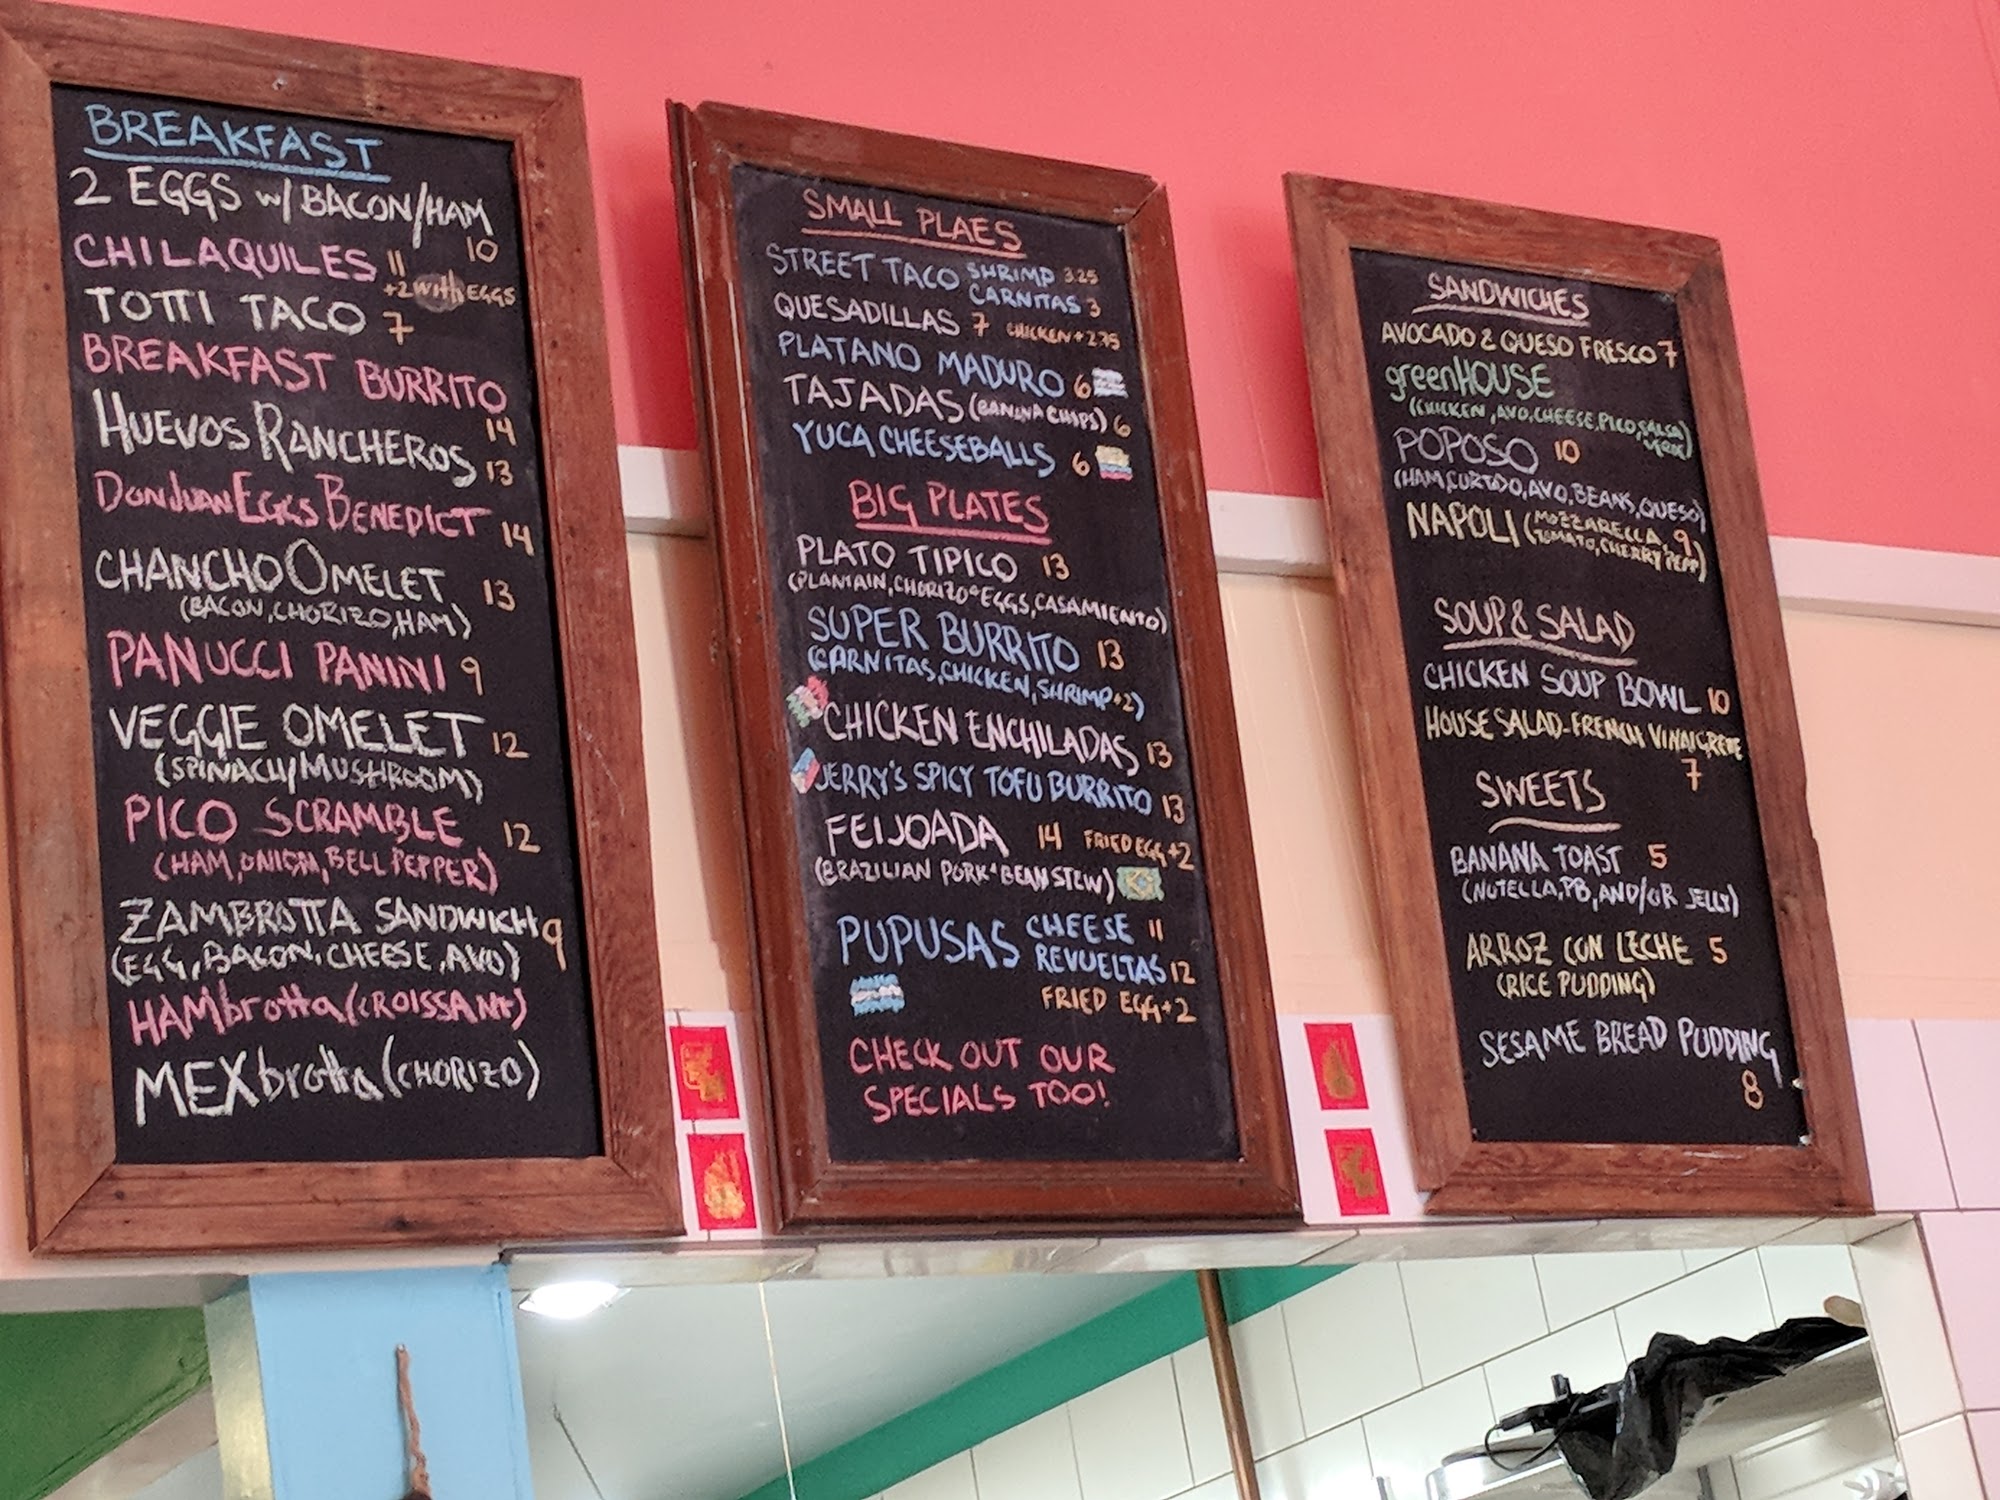 BREAKFAST
2 EGGS w/ BACON/HAM
10
CHILAQUILES 11
+2 with EGGS
TOTTI TACO 7
BREAKFAST BURRITO
14
HUEVOS RANCHEROS 13
DON JUAN EGGS BENEDICT 14
CHANCHO OMELET 13
(BACON, CHORIZO, HAM)
PANUCCI PANINI 9
VEGGIE OMELET 12
(SPINACH/MUSHROOM)
PICO SCRAMBLE 12
(HAM, ONION, BELL PEPPER)
ZAMBROTTA SANDWICH 9
(EGG, BACON, CHEESE, AVO)
HAMbrotta (CROISSANT)
MEXbrotta (CHORIZO)
SMALL PLAES
STREET TACO SHRIMP 3.25
CARNITAS 3
QUESADILLAS 7 CHICKEN +2.75
PLATANO MADURO 6
TAJADAS (BANANA CHIPS) 6
YUCA CHEESEBALLS 6
BIG PLATES
PLATO TIPICO 13
(PLANTAIN, CHORIZO & EGGS, CASAMIENTO)
SUPER BURRITO 13
(CARNITAS, CHICKEN, SHRIMP +2)
CHICKEN ENCHILADAS 13
JERRY'S SPICY TOFU BURRITO 13
FEIJOADA 14 FRIED EGG +2
(BRAZILIAN PORK & BEAN STEW)
PUPUSAS CHEESE 11
REVUELTAS 12
FRIED EGG +2
CHECK OUT OUR
SPECIALS TOO!
SANDWICHES
AVOCADO & QUESO FRESCO 7
greenHOUSE
(CHICKEN, AVO, CHEESE, PICO, SALSA
VERDE)
POPOSO 10
(HAM, CURTIDO, AVO, BEANS, QUESO)
NAPOLI (MOZZARELLA, 9
TOMATO, CHERRY PEPP)
SOUP & SALAD
CHICKEN SOUP BOWL 10
HOUSE SALAD - FRENCH VINAIGRETTE
7
SWEETS
BANANA TOAST 5
(NUTELLA, PB, AND/OR JELLY)
ARROZ CON LECHE 5
(RICE PUDDING)
SESAME BREAD PUDDING
8